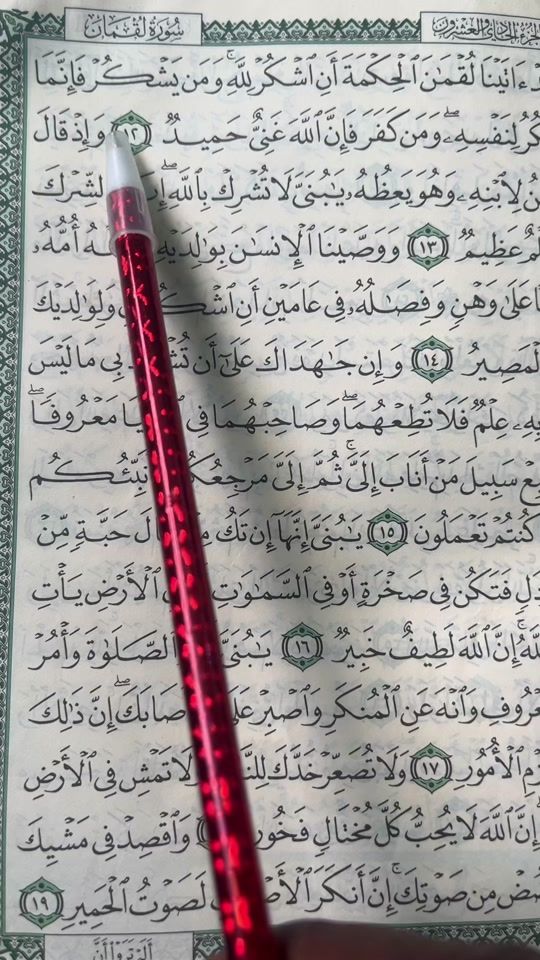 سُورَةُ لُقْمَانَ
ءَاتَيْنَا لُقْمَٰنَ ٱلْحِكْمَةَ أَنِ ٱشْكُرْ لِلَّهِ ۚ وَمَن يَشْكُرْ فَإِنَّمَا
لِنَفْسِهِۦ ۖ وَمَن كَفَرَ فَإِنَّ ٱللَّهَ غَنِىٌّ حَمِيدٌ ١٢ وَإِذْ قَالَ
لِٱبْنِهِۦ وَهُوَ يَعِظُهُۥ يَٰبُنَىَّ لَا تُشْرِكْ بِٱللَّهِ ۖ
عَظِيمٌ ١٣ وَوَصَّيْنَا ٱلْإِنسَٰنَ بِوَٰلِدَيْهِ أُمُّهُۥ
عَلَىٰ وَهْنٍ وَفِصَٰلُهُۥ فِى عَامَيْنِ أَنِ وَلِوَٰلِدَيْكَ
ٱلْمَصِيرُ ١٤ وَإِن جَٰهَدَاكَ عَلَىٰٓ أَن بِى مَا لَيْسَ
بِهِۦ عِلْمٌ فَلَا تُطِعْهُمَا ۖ وَصَاحِبْهُمَا فِى مَعْرُوفًا ۖ
سَبِيلَ مَنْ أَنَابَ إِلَىَّ ۚ ثُمَّ إِلَىَّ
كُنتُمْ تَعْمَلُونَ ١٥ يَٰبُنَىَّ إِنَّهَآ إِن تَكُ حَبَّةٍ مِّنْ
فَتَكُن فِى صَخْرَةٍ أَوْ فِى ٱلسَّمَٰوَٰتِ ٱلْأَرْضِ يَأْتِ
إِنَّ ٱللَّهَ لَطِيفٌ خَبِيرٌ ١٦ يَٰبُنَىَّ ٱلصَّلَوٰةَ وَأْمُرْ
وَٱنْهَ عَنِ ٱلْمُنكَرِ وَٱصْبِرْ إِنَّ ذَٰلِكَ
ٱلْأُمُورِ ١٧ وَلَا تُصَعِّرْ خَدَّكَ وَلَا تَمْشِ فِى ٱلْأَرْضِ
إِنَّ ٱللَّهَ لَا يُحِبُّ كُلَّ مُخْتَالٍ فَخُورٍ وَٱقْصِدْ فِى مَشْيِكَ
مِن صَوْتِكَ ۚ إِنَّ أَنكَرَ لَصَوْتُ ٱلْحَمِيرِ ١٩